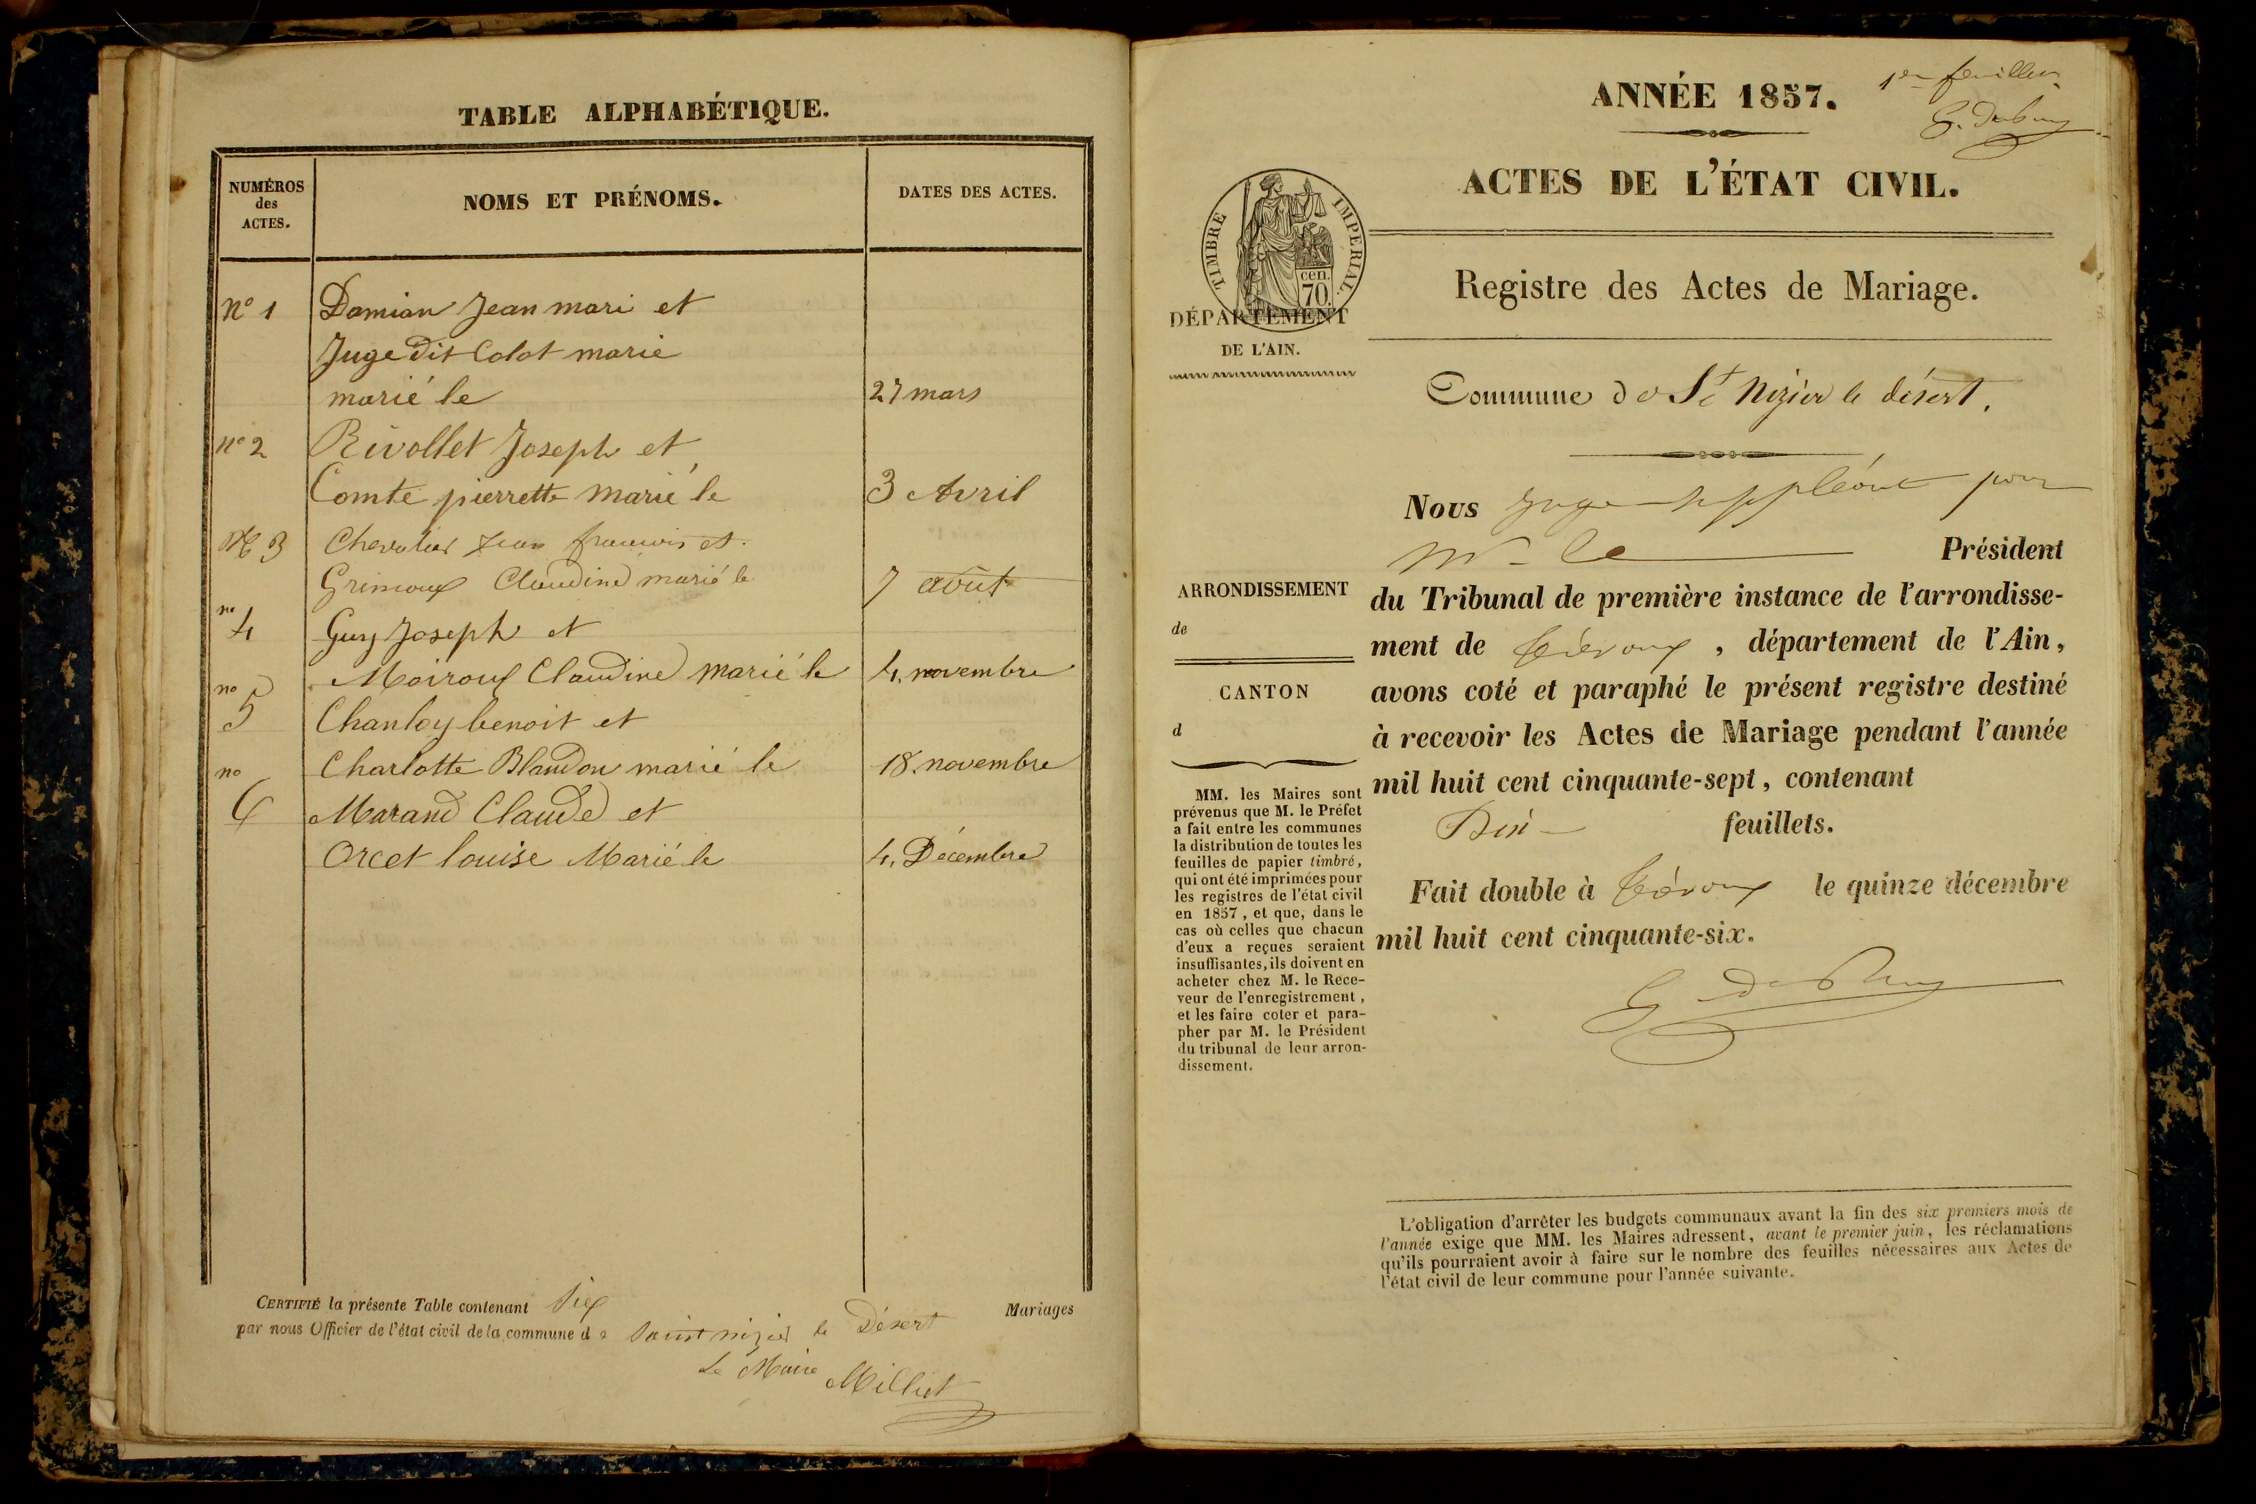 TABLE ALPHABÉTIQUE.
NUMÉROS
des
ACTES.
NOMS ET PRÉNOMS.
DATES DES ACTES.
n° 1 Damian Jean mari et
Juge dit Colot marie
marié le 27 mars
n° 2 Rivollet Joseph et
Comte pierrette marié le 3 Avril
N° 3 Chevalier Jean francois et
Grimoux Claudine marié le 7 août
no 4 Guy Joseph et
Moiroux Claudine marié le 4 novembre
no 5 Chanloy benoit et
Charlotte Blandon marié le 18 novembre
no 6 Marand Claude et
Orcet louise Marié le 4 Décembre
CERTIFIÉ la présente Table contenant Six Mariages
par nous Officier de l'état civil de la commune de Saint nizier le Désert
Le Maire
Milliet
1er feuillet
G. Debuy
ANNÉE 1857.
ACTES DE L'ÉTAT CIVIL.
TIMBRE IMPERIAL.
cen.
70.
DÉPARTEMENT
DE L'AIN.
Registre des Actes de Mariage.
Commune de St Nizier le désert.
Nous Juge suppléant pour
Mr le Président
du Tribunal de première instance de l'arrondisse-
ment de Trévoux, département de l'Ain,
avons coté et paraphé le présent registre destiné
à recevoir les Actes de Mariage pendant l'année
mil huit cent cinquante-sept, contenant
feuillets.
Fait double à Trévoux le quinze décembre
mil huit cent cinquante-six.
ARRONDISSEMENT
de
CANTON
d
MM. les Maires sont
prévenus que M. le Préfet
a fait entre les communes
la distribution de toutes les
feuilles de papier timbré,
qui ont été imprimées pour
les registres de l'état civil
en 1857, et que, dans le
cas où celles que chacun
d'eux a reçues seraient
insuffisantes, ils doivent en
acheter chez M. le Rece-
veur de l'enregistrement,
et les faire coter et para-
pher par M. le Président
du tribunal de leur arron-
dissement.
L'obligation d'arrêter les budgets communaux avant la fin des six premiers mois de
l'année exige que MM. les Maires adressent, avant le premier juin, les réclamations
qu'ils pourraient avoir à faire sur le nombre des feuilles nécessaires aux Actes de
l'état civil de leur commune pour l'année suivante.